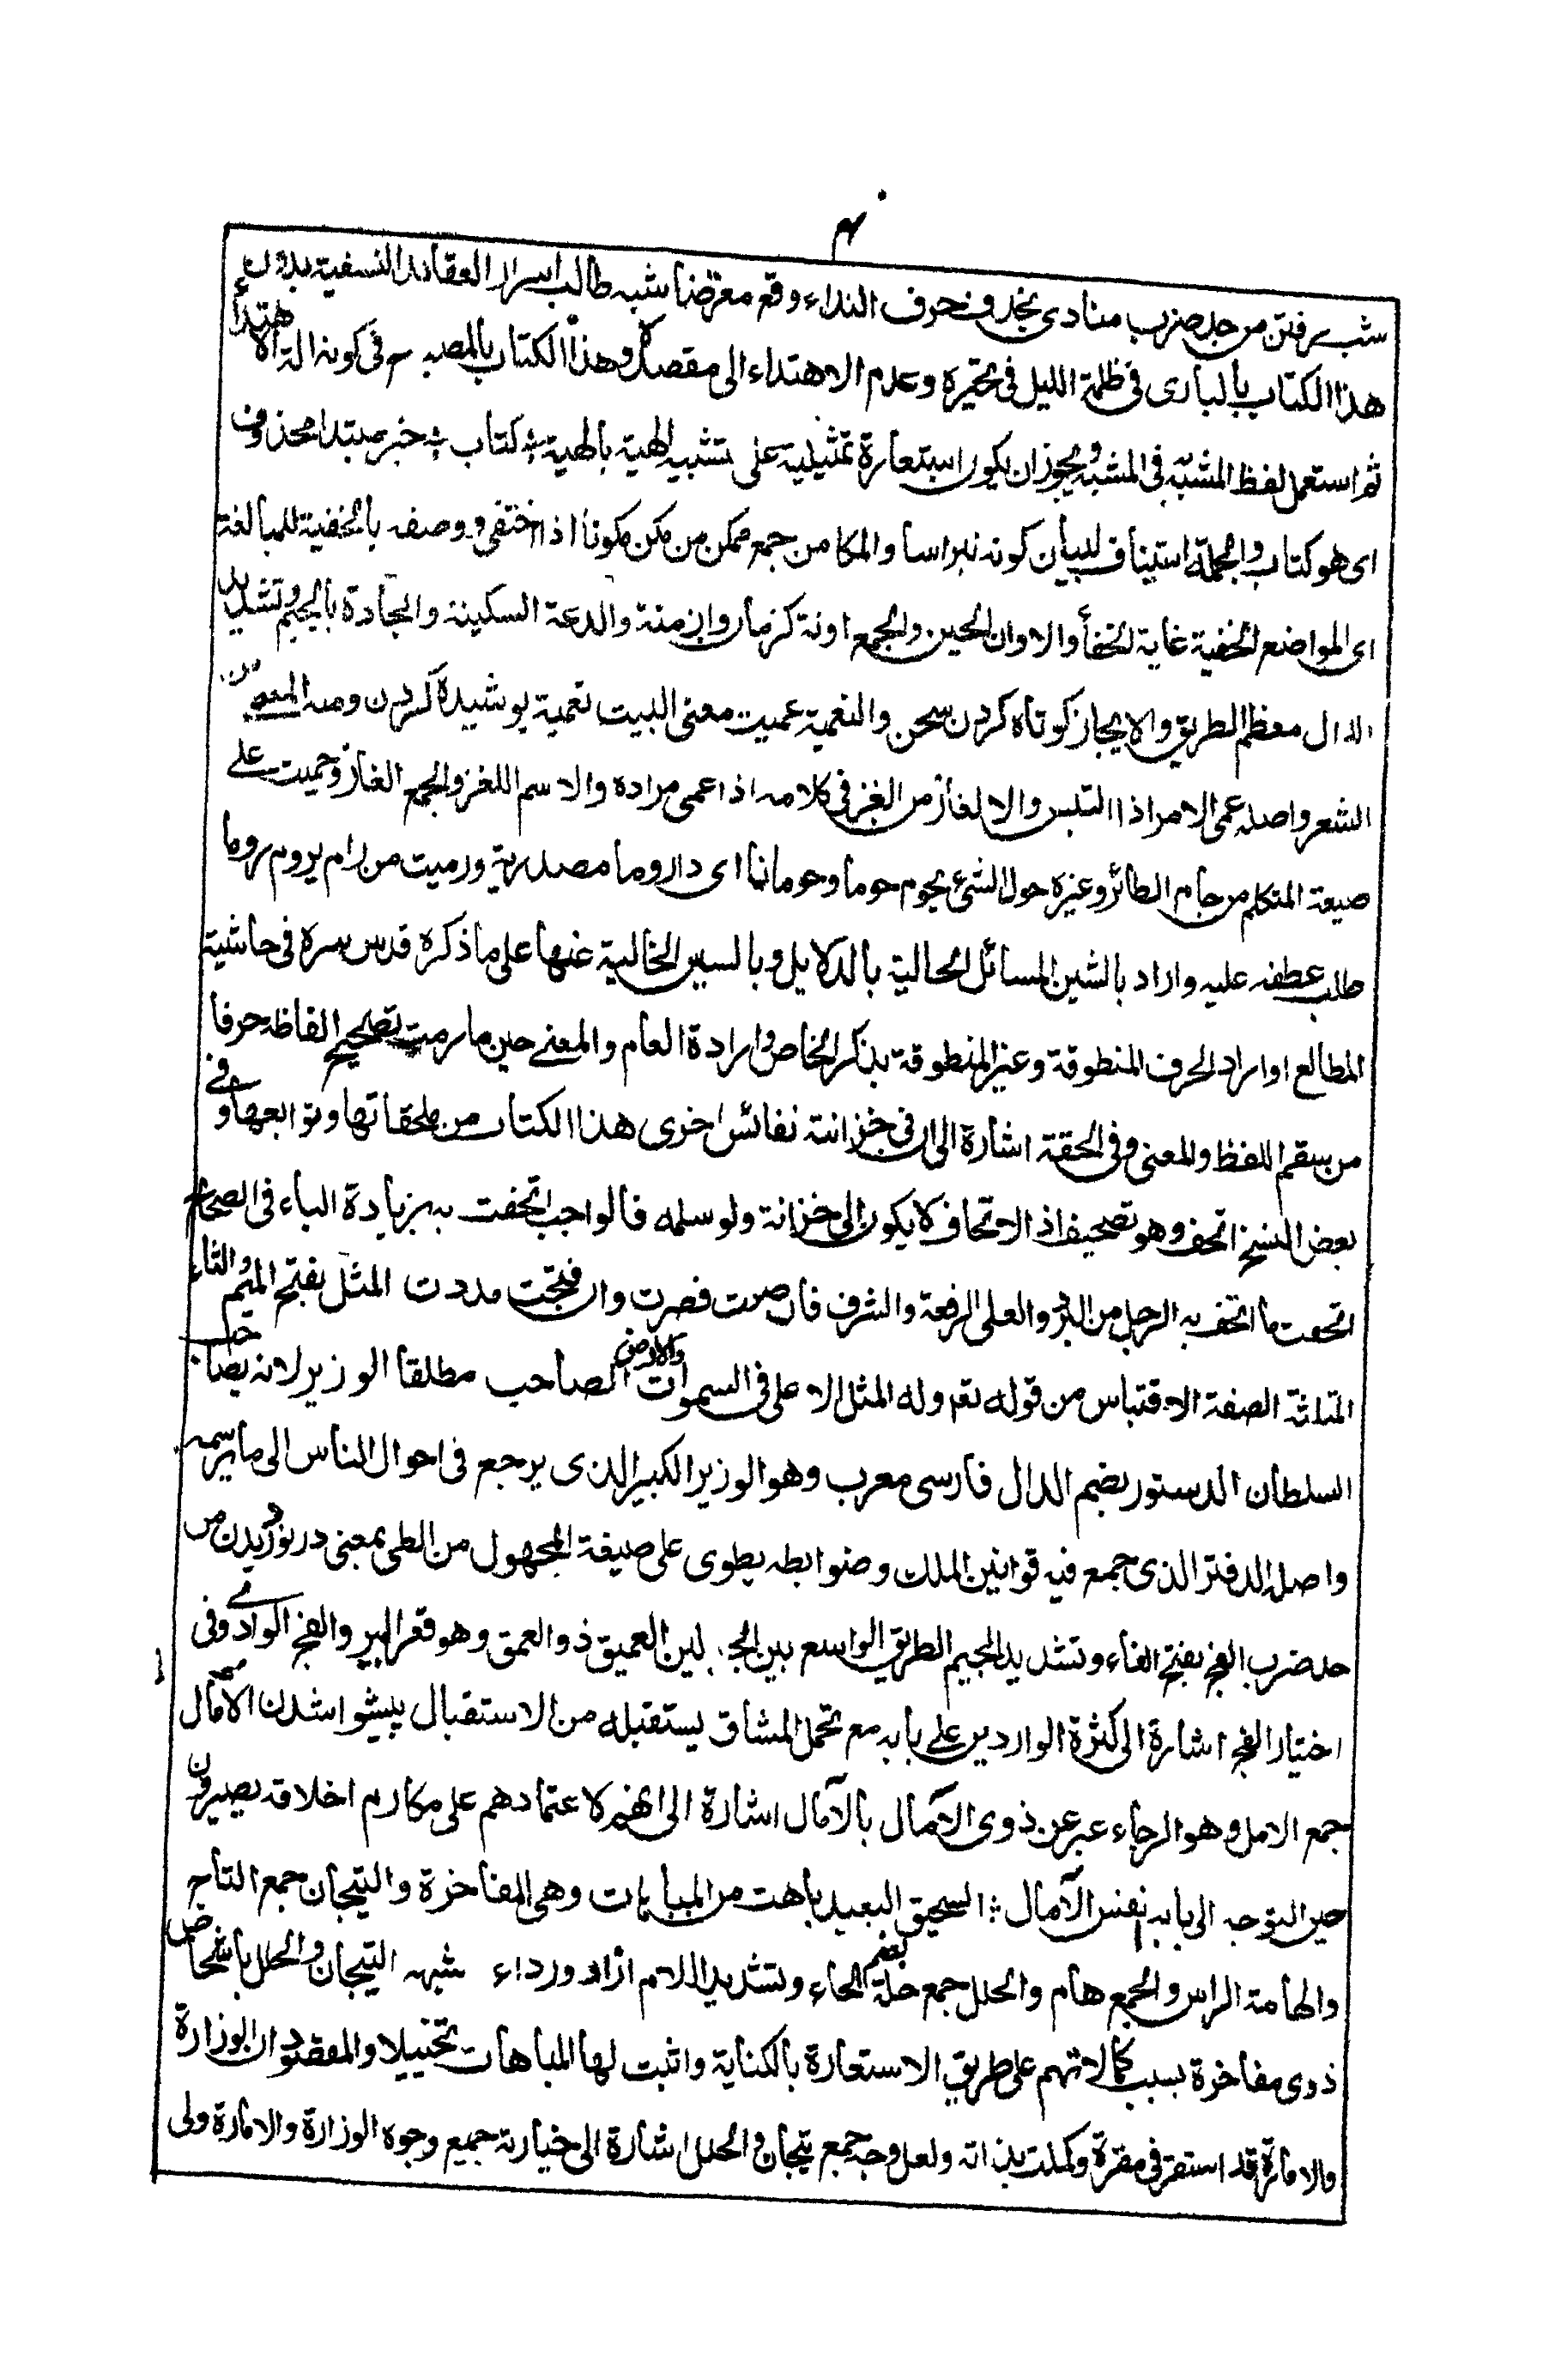 شب رفتن من حد ضرب منادى بحذف حرف النداء وقع معترضا شبه طالب اسرار العقائد النسفية بدون
هذا الكتاب بالسارى فى ظلمة الليل فى تحيره وعدم الاهتداء الى مقصده وهذا الكتاب بالمصبـاح فى كونه آلة الاهتداء
ثم استعمل لفظ المشبه فى المشبه ويجوز ان يكون استعارة تمثيلية على تشبيه الهيئة بالهيئة كتاب خبر مبتدا محذوف
اى هو كتاب والجملة استيناف لبيان كونه نبراسا والمكامن جمع مكمن من كمن كمونا اذا اختفى ووصفه بالخفية للمبالغة
اى المواضع الخفية غاية الخفأ والاوان الحين والجمع اونة كزمان وازمنة والدعة السكينة والجادة بالجيم وتشديد
الدال معظم الطريق والايجاز كوتاه كردن سخن والتعمية عميت معنى البيت تعمية پوشيده كردن ومنه المعمى من
الشعر واصله عمى الامر اذا التبس والالغاز من الغز فى كلامه اذا عمى مراده والاسم اللغز والجمع الغاز وحميت على
صيغة المتكلم من حام الطائر وغيره حول الشئ يحوم حوما وحومانا اى دار وما مصدرية ورميت من رام يروم روما
طلب عطفه عليه واراد بالشين المسائل الحالية بالدلايل وبالسين الخالية عنها على ما ذكره قدس سره فى حاشية
المطالع او اراد الحرف المنطوقة وغير المنطوقة بذكر الخاص وارادة العام والمعنى حين ما رمت تصحيح الفاظه حرفا
من سقم اللفظ والمعنى وفى الحقة اشارة الى ان فى خزانته نفائس اخرى هذا الكتاب من ملحقاتها وتوابعها وفى
بعض النسخ اتحف وهو تصحيف اذ الاتحاف لا يكون الى خزانة ولو سلمه فالواجب اتحفت به بزيادة الباء فى الصحاح
اتحفت ما اتحف به الرجل من البر والعلى الرفعة والشرف فان ضمت قصرت وان فتحت مددت المثل بفتح الميم والثاء
المثلثة الصفة الاقتباس من قوله تعم وله المثل الاعلى فى السموات والارض الصاحب مطلقا الوزير لانه يصاحب
السلطان الدستور بضم الدال فارسى معرب وهو الوزير الكبير الذى يرجع فى احوال الناس الى ما يرسمه
واصله الدفتر الذى جمع فيه قوانين الملك وضوابطه يطوى على صيغة المجهول من الطى بمعنى در نورديدن من
حد ضرب الفج بفتح الفاء وتشديد الجيم الطريق الواسع بين الجبلين العميق ذو العمق وهو قعر البير والفج الوادى وفى
اختيار الفج اشارة الى كثرة الواردين على بابه مع تحمل المشاق يستقبله من الاستقبال پيشوا شدن الآمال
جمع الامل وهو الرجاء عبر عن ذوى الآمال بالآمال اشارة الى انهم لاعتمادهم على مكارم اخلاقه يصيرون
حين التوجه الى بابه نفس الآمال السحيق البعيد باهت من المباهات وهى المفاخرة والتيجان جمع التاج
والهامة الراس والجمع هام والحلل جمع حلة بضم الحاء وتشديد اللام ازار ورداء شبه التيجان والحلل باشخاص
ذوى مفاخرة بسبب كمالاتهم على طريق الاستعارة بالكناية واثبت لها المباهات تخييلا والمقصود ان الوزارة
والامارة قد استقر فى مقره وكملت بذاته ولعل وجه جمع تيجان والحلل اشارة الى خيارته جميع وجوه الوزارة والامارة ولى